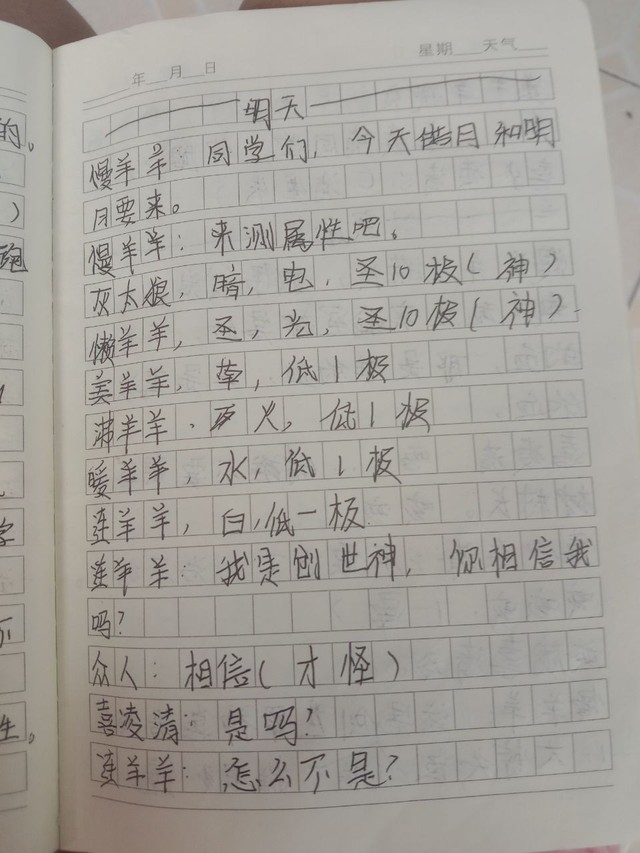 年 月 日
星期 天气
明天
慢羊羊：同学们，今天借月和明
月要来。
慢羊羊：来测属性吧。
灰太狼，暗，电，圣10板（神）
懒羊羊，圣，光，圣10板（神）
美羊羊，草，低1板
沸羊羊．火，低1板
暖羊羊，水，低1板
连羊羊，白，低一板
连羊羊：我是创世神，你相信我
吗？
众人：相信（才怪）
喜凌清：是吗？
连羊羊：怎么不是？
的。
）
跑
字
不
生。